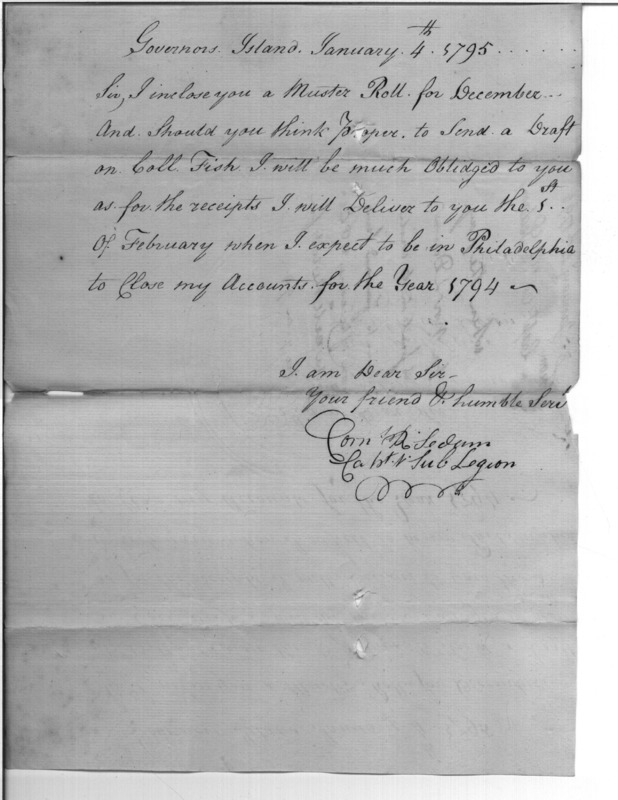 Governors Island. January. 4th. 1795......
Sir, I inclose you a Muster Roll. for December...
And. Should you think Proper. to Send. a Draft
on Coll. Fish. I. will be much Oblidged to you
as. for. the receipts I. will Deliver to you the. 1st..
Of. February when I. expect to be in Philadelphia
to Close my Accounts. for the Year 1794 ~
I. am Dear Sir -
Your friend & humble Servt
Corn R. Sedam
Capt 1t Sub Legion